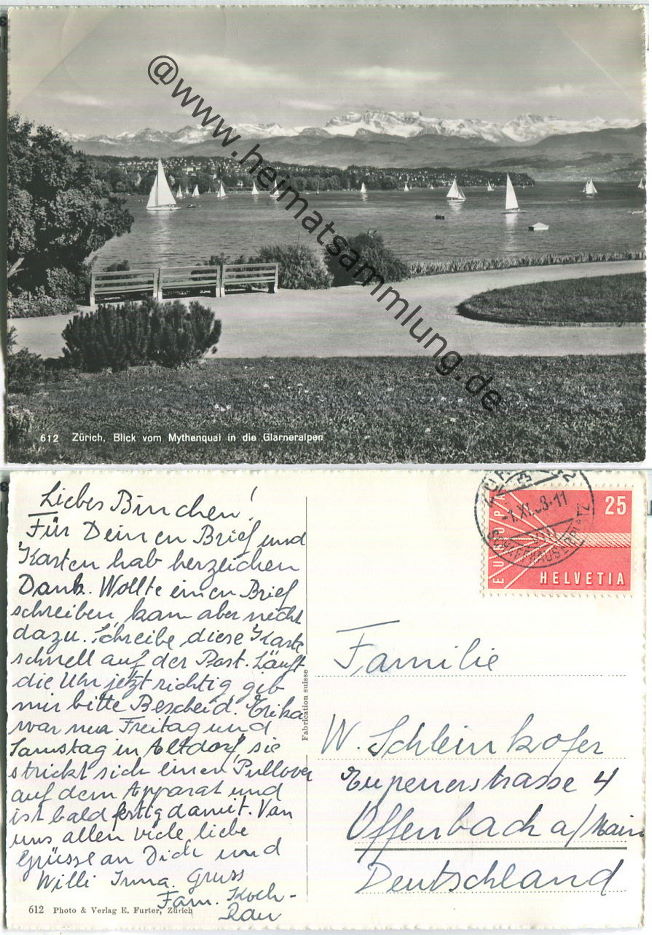 @www.heimatsammlung.de
612 Zürich, Blick vom Mythenquai in die Glarneralpen
Liebes Binchen!
Für Deinen Brief und
Karten hab herzlichen
Dank. Wollte einen Brief
schreiben, kam aber nicht
dazu. Schreibe diese Karte
schnell auf der Post. Läuft
die Uhr jetzt richtig gib
mir bitte Bescheid. Erika
war nur Freitag und
Samstag in Altdorf, sie
strickt sich einen Pullover
auf dem Apparat und
ist bald fertig damit. Von
uns allen viele liebe
Grüsse an Dich und
Willi Irma. Gruss
Fam. Koch-
Rau
612 Photo & Verlag E. Furter, Zürich
Fabrication suisse
25
EUROPA
HELVETIA
-1.XI.58-11
Familie
W. Schleinkofer
Eupenerstrasse 4
Offenbach a/Main
Deutschland